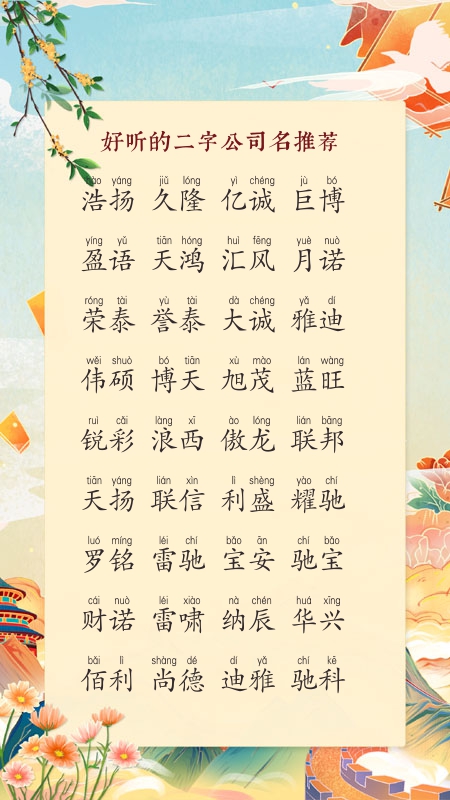 好听的二字公司名推荐
hào yáng jiǔ lóng yì chéng jù bó
浩扬 久隆 亿诚 巨博
yíng yǔ tiān hóng huì fēng yuè nuò
盈语 天鸿 汇风 月诺
róng tài yù tài dà chéng yǎ dí
荣泰 誉泰 大诚 雅迪
wěi shuò bó tiān xù mào lán wàng
伟硕 博天 旭茂 蓝旺
ruì cǎi làng xī ào lóng lián bāng
锐彩 浪西 傲龙 联邦
tiān yáng lián xìn lì shèng yào chí
天扬 联信 利盛 耀驰
luó míng léi chí bǎo ān chí bǎo
罗铭 雷驰 宝安 驰宝
cái nuò léi xiào nà chén huá xīng
财诺 雷啸 纳辰 华兴
bǎi lì shàng dé dí yǎ chí kē
佰利 尚德 迪雅 驰科